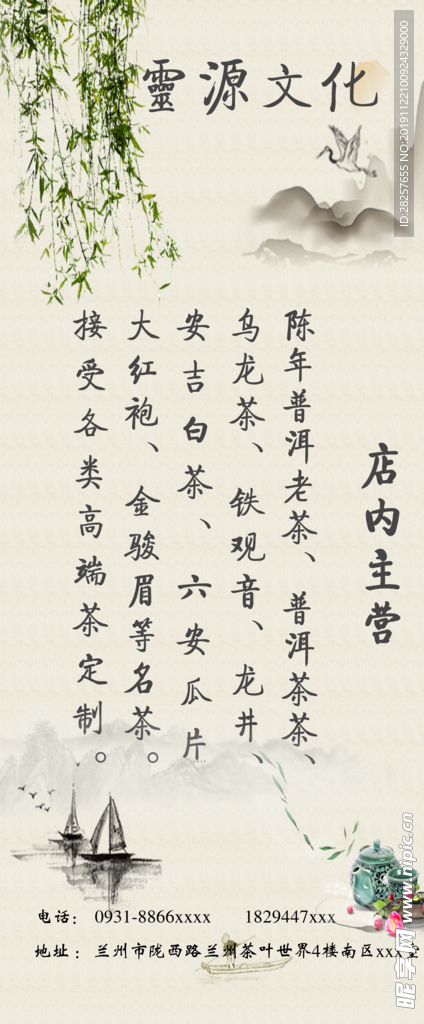 靈源文化
店内主营
陈年普洱老茶、普洱茶茶、
乌龙茶、铁观音、龙井、
安吉白茶、六安瓜片
大红袍、金骏眉等名茶。
接受各类高端茶定制。
电话： 0931-8866xxxx 1829447xxx
地址： 兰州市陇西路兰州茶叶世界4楼南区xxx
ID:28257655 NO:20191122100924329000
昵享网 www.nipic.cn